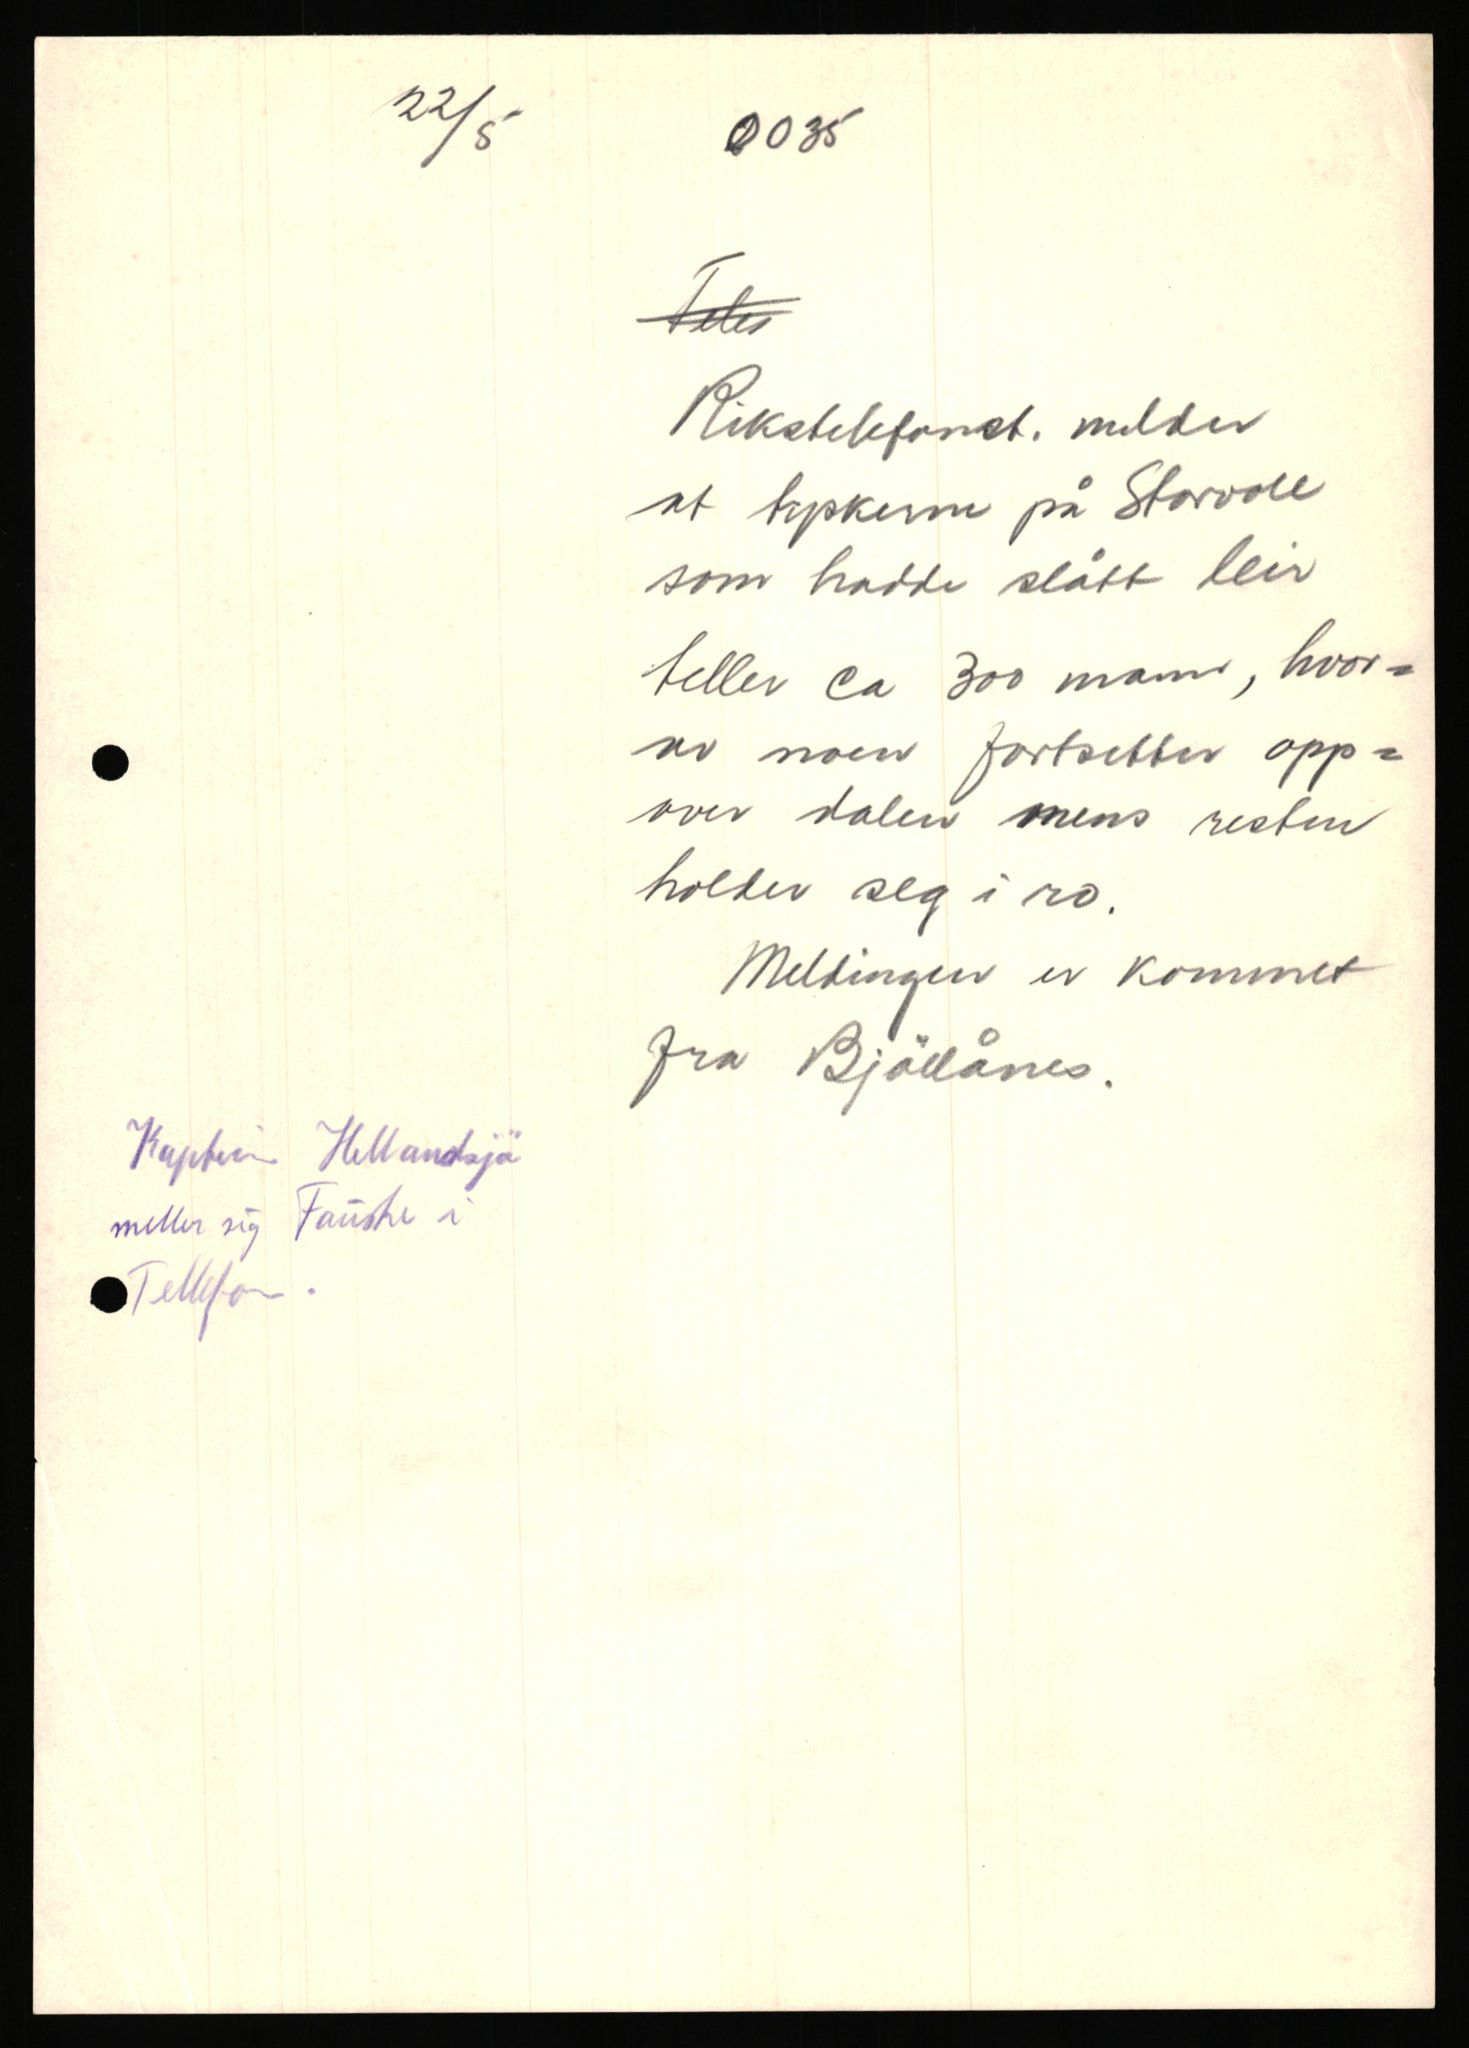 22/5 0035
Telef
Rikstelefonst. melder
at tyskerne på Storvoll
som hadde slått leir
teller ca 300 mann, hvor=
av noen fortsetter opp=
over dalen mens resten
holder seg i ro.
Meldingen er kommet
fra Bjöllånes.
Kaptein Hellandsjö
meller sig Fauske i
Tellefon.